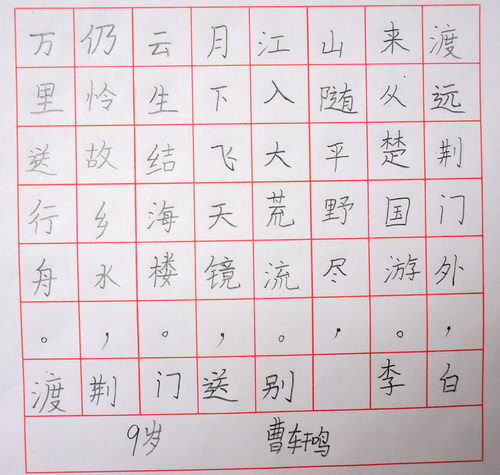 渡远荆门外，
来从楚国游。
山随平野尽，
江入大荒流。
月下飞天镜，
云生结海楼。
仍怜故乡水，
万里送行舟。
渡荆门送别 李白
9岁 曹轩鸣